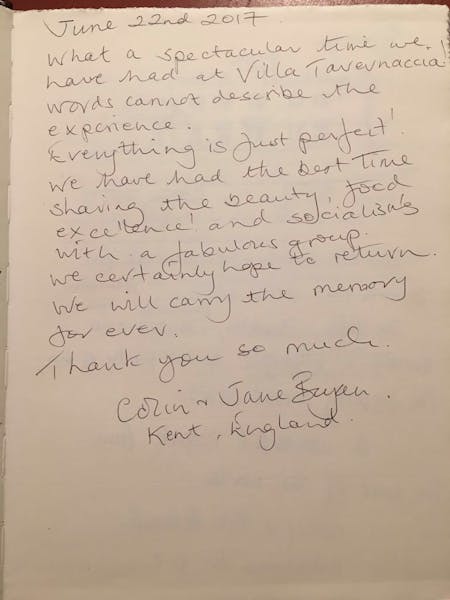 June 22nd 2017.
What a spectacular time we
have had at Villa Tavernaccia!
words cannot describe the
experience.
Everything is just perfect!
we have had the best time
sharing the beauty, food
excellence! and socialising
with a fabulous group.
we certainly hope to return.
We will carry the memory
for ever.
Thank you so much.
Colin & Jane
Kent, England.